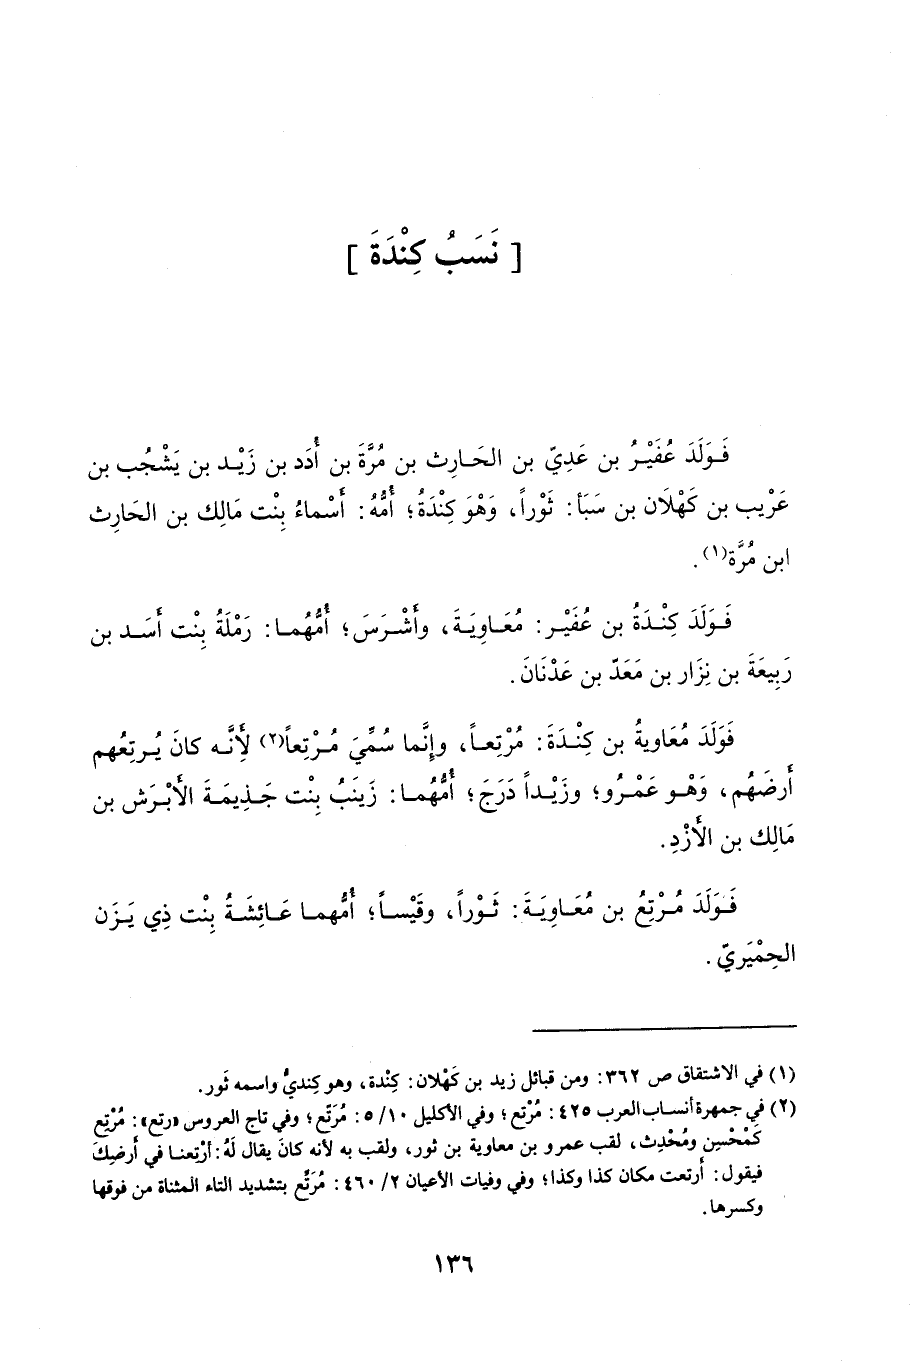 [ نَسَبُ كِنْدَةَ ]
فَـوَلَدَ عُفَيْـرُ بن عَدِيّ بن الحَـارِث بن مُرَّةَ بن أُدَد بن زَيْـد بن يَشْجُب بن
عَرْيب بن كَهْلَان بن سَبَأ: ثَوْراً، وَهْوَ كِنْدَةُ؛ أُمُّهُ: أَسْماءُ بِنْت مَالِك بن الحَارِث
ابن مُرَّة(١).
فَـوَلَدَ كِنْـدَةُ بن عُفَيْـر: مُعَـاوِيَـةَ، وأَشْـرَسَ؛ أُمُّهُمـا: رَمْلَةُ بِنْت أَسَـد بن
رَبِيعَةَ بن نِزَار بن مَعَدّ بن عَدْنَانَ.
فَوَلَدَ مُعَاويةُ بن كِنْـدَةَ: مُرْتِعـاً، وإِنَّما سُمِّيَ مُـرْتِعاً(٢) لِأَنَّـه كانَ يُـرتِعُهم
أَرضَهُم، وَهْـو عَمْـرُو؛ وزَيْـداً دَرَجَ؛ أُمُّهُمـا: زَينَبُ بِنْت جَـذِيمَـةَ الأَبْـرَش بن
مَالِك بن الأَزْدِ.
فَـوَلَدَ مُـرْتِعُ بن مُعَـاوِيَـةَ: ثَـوْراً، وقَيْسـاً؛ أُمُّهما عَـائِشَـةُ بِنْت ذِي يَـزَن
الحِمْيَريّ.
(١) في الاشتقاق ص ٣٦٢: ومن قبائل زيد بن كَهْلان: كِنْدة، وهو كِنديٌّ واسمه ثَور.
(٢) في جمهرة أنساب العرب ٤٢٥: مُرْتع؛ وفي الأكليل ١٠/ ٥: مُرَتِّع؛ وفي تاج العروس «رتع»: مُرْتِع
كَمُحْسِن ومُحْدِث، لقب عمرو بن معاوية بن ثور، ولقب به لأنه كانَ يقال لَهُ: أرْتِعنـا في أَرضِكَ
فيقول: أَرتعت مكان كذا وكذا؛ وفي وفيات الأعيان ٢/ ٤٦٠: مُرَتِّع بتشديد التاء المثناة من فوقها
وكسرها.
١٣٦